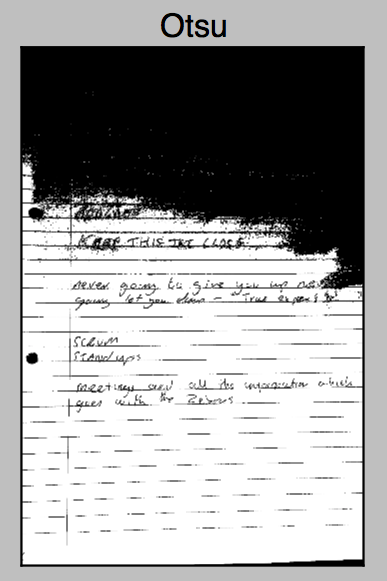 Otsu
KEEP THIS TXT CLOSE
never going to give you up never
going let you down - True
SCRUM
STANDUPS
meetings and all the information which
goes with the